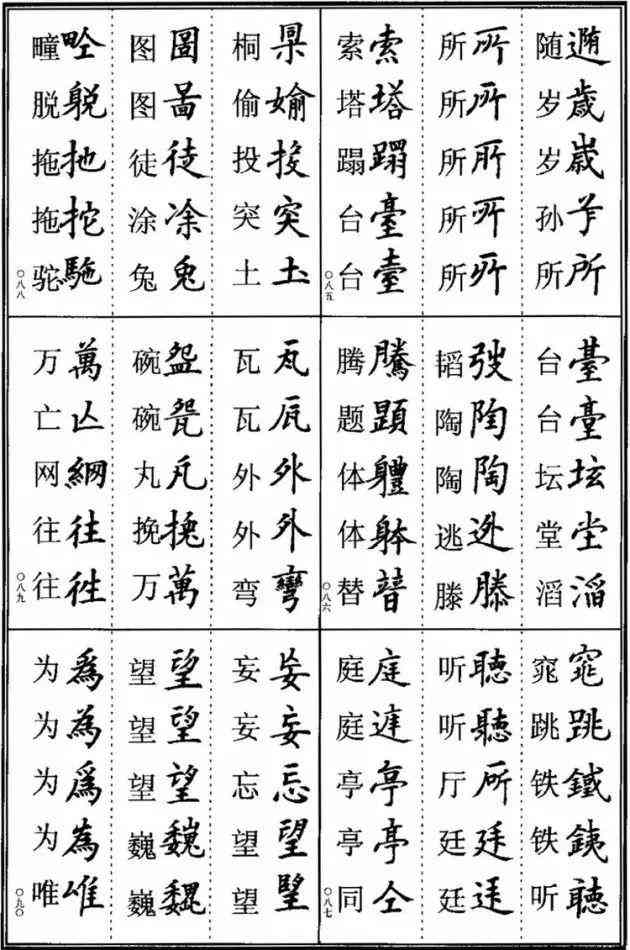 歲歳所
随岁岁孙所
所所所所所
所所所所所
索塔蹋臺臺
索塔蹋台台
〇八五
臺坛堂滔
台台坛堂滔
弢陶陶迯滕
韬陶陶逃滕
騰題軆躰替
腾题体体替
〇八六
窕跳鐵銕聽
窕跳铁铁听
聽聽所廷
听听厅廷廷
庭亭亭仝
庭庭亭亭同
〇八七
媮投突土
桐偷投突土
圖啚徒凃兔
图图徒涂兔
畻躮拖駞
疃脱拖拖驼
〇八八
瓦瓦外外彎
瓦瓦外外弯
盌甇挽萬
碗碗丸挽万
萬亾網往徃
万亡网往往
〇八九
妄妄忘望望
妄妄忘望望
望望望巍巍
望望望巍巍
為為爲為唯
为为为为唯
〇九〇